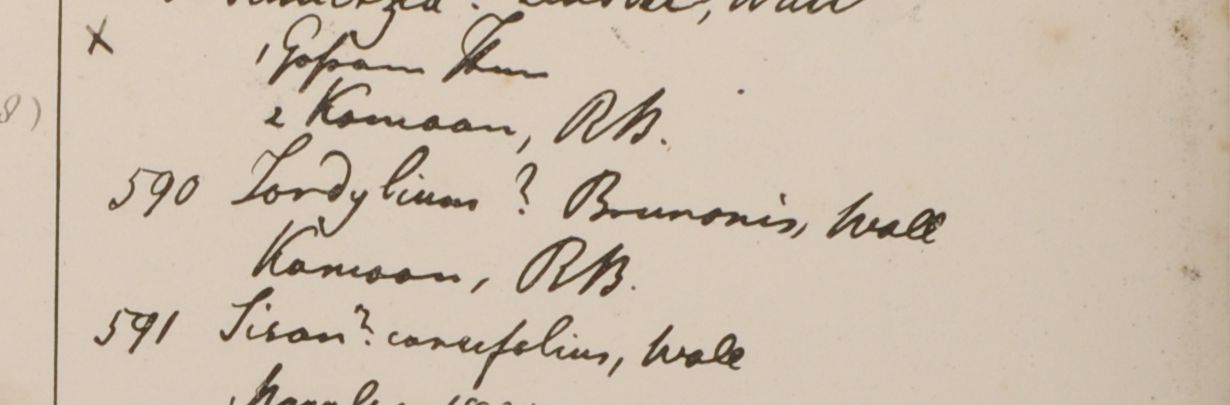 Wall
x
1 Gossam Than
8)
2 Kamaon, RB.
590 Tordylium ? Brunonis, Wall
Kamaon, RB.
591 Sison? carvifolium, Wall